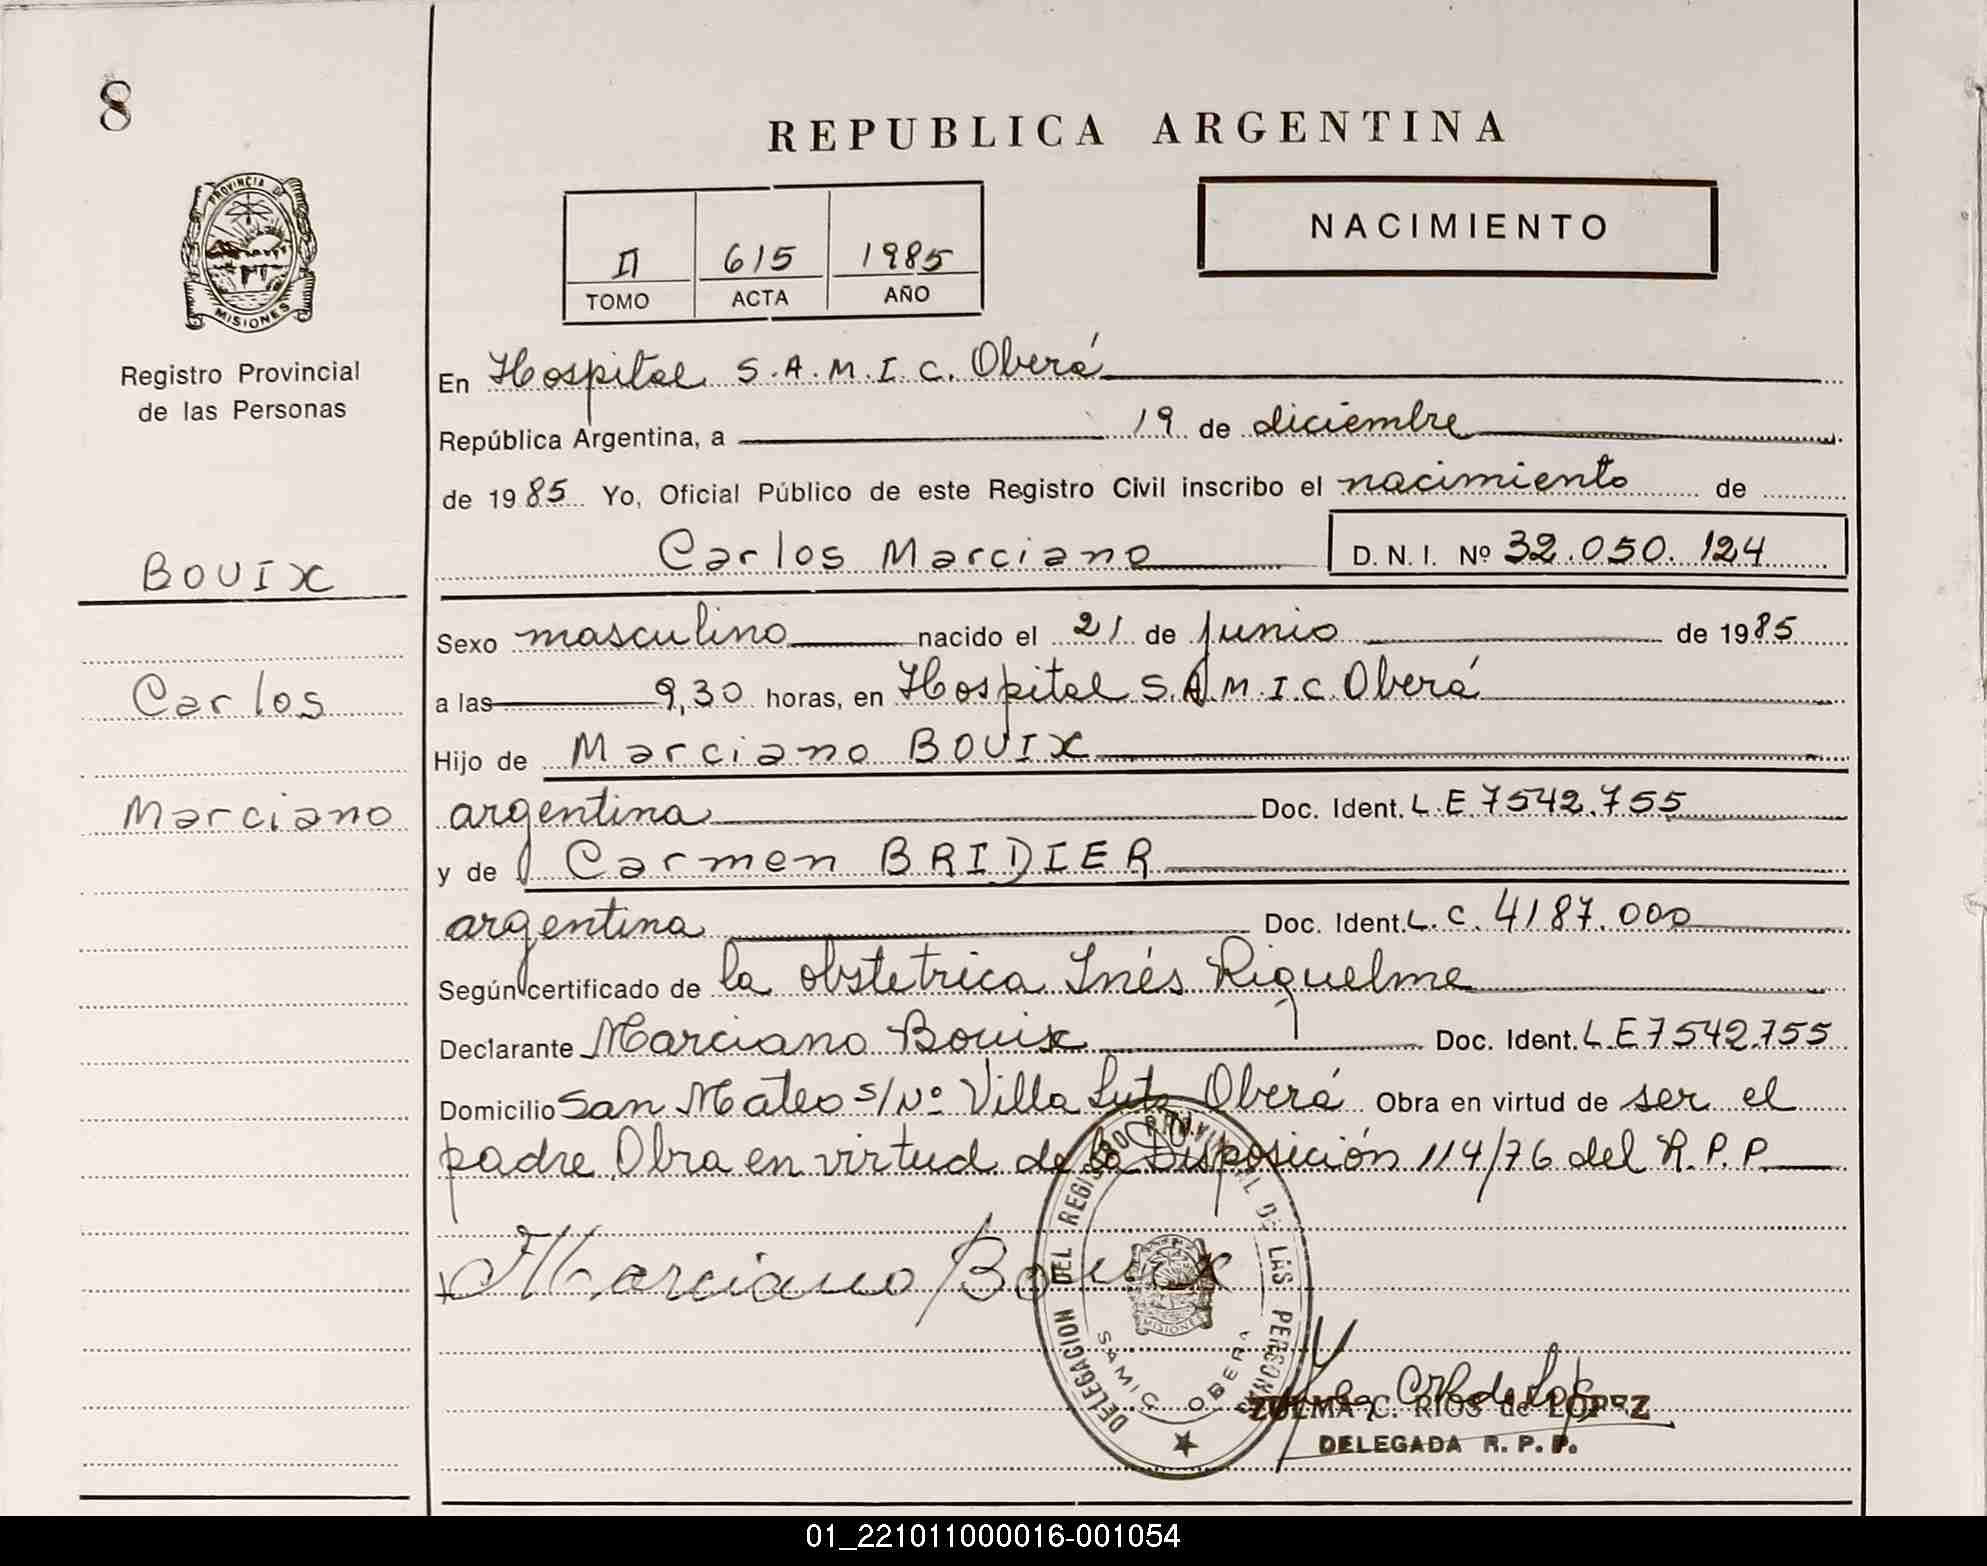 8
REPUBLICA ARGENTINA
PROVINCIA DE
MISIONES
Registro Provincial
de las Personas
II 615 1985
TOMO ACTA AÑO
NACIMIENTO
En Hospital S.A.M.I.C. Oberá
República Argentina, a 19 de diciembre
de 1985 Yo, Oficial Público de este Registro Civil inscribo el nacimiento de
Carlos Marciano D. N. I. Nº 32.050.124
BOUIX
Carlos
Marciano
Sexo masculino nacido el 21 de junio de 1985
a las 9,30 horas, en Hospital S.A.M.I.C. Oberá
Hijo de Marciano BOUIX
argentina Doc. Ident. L.E.7542.755
y de Carmen BRIDIER
argentina Doc. Ident. L.C. 4187.000
Según certificado de la obstetrica Inés Riquelme
Declarante Marciano Bouix Doc. Ident. L.E 7542.755
Domicilio San Mateo s/Nº Villa Oberá Obra en virtud de ser el
padre. Obra en virtud de la Disposición 114/76 del R.P.P.
Marciano Bouix
DELEGACION DEL REGISTRO PROVINCIAL DE LAS PERSONAS
MISIONES
SAMIC OBERA
ZULMA C. RIOS de LOPEZ
DELEGADA R. P. P.
01_221011000016-001054